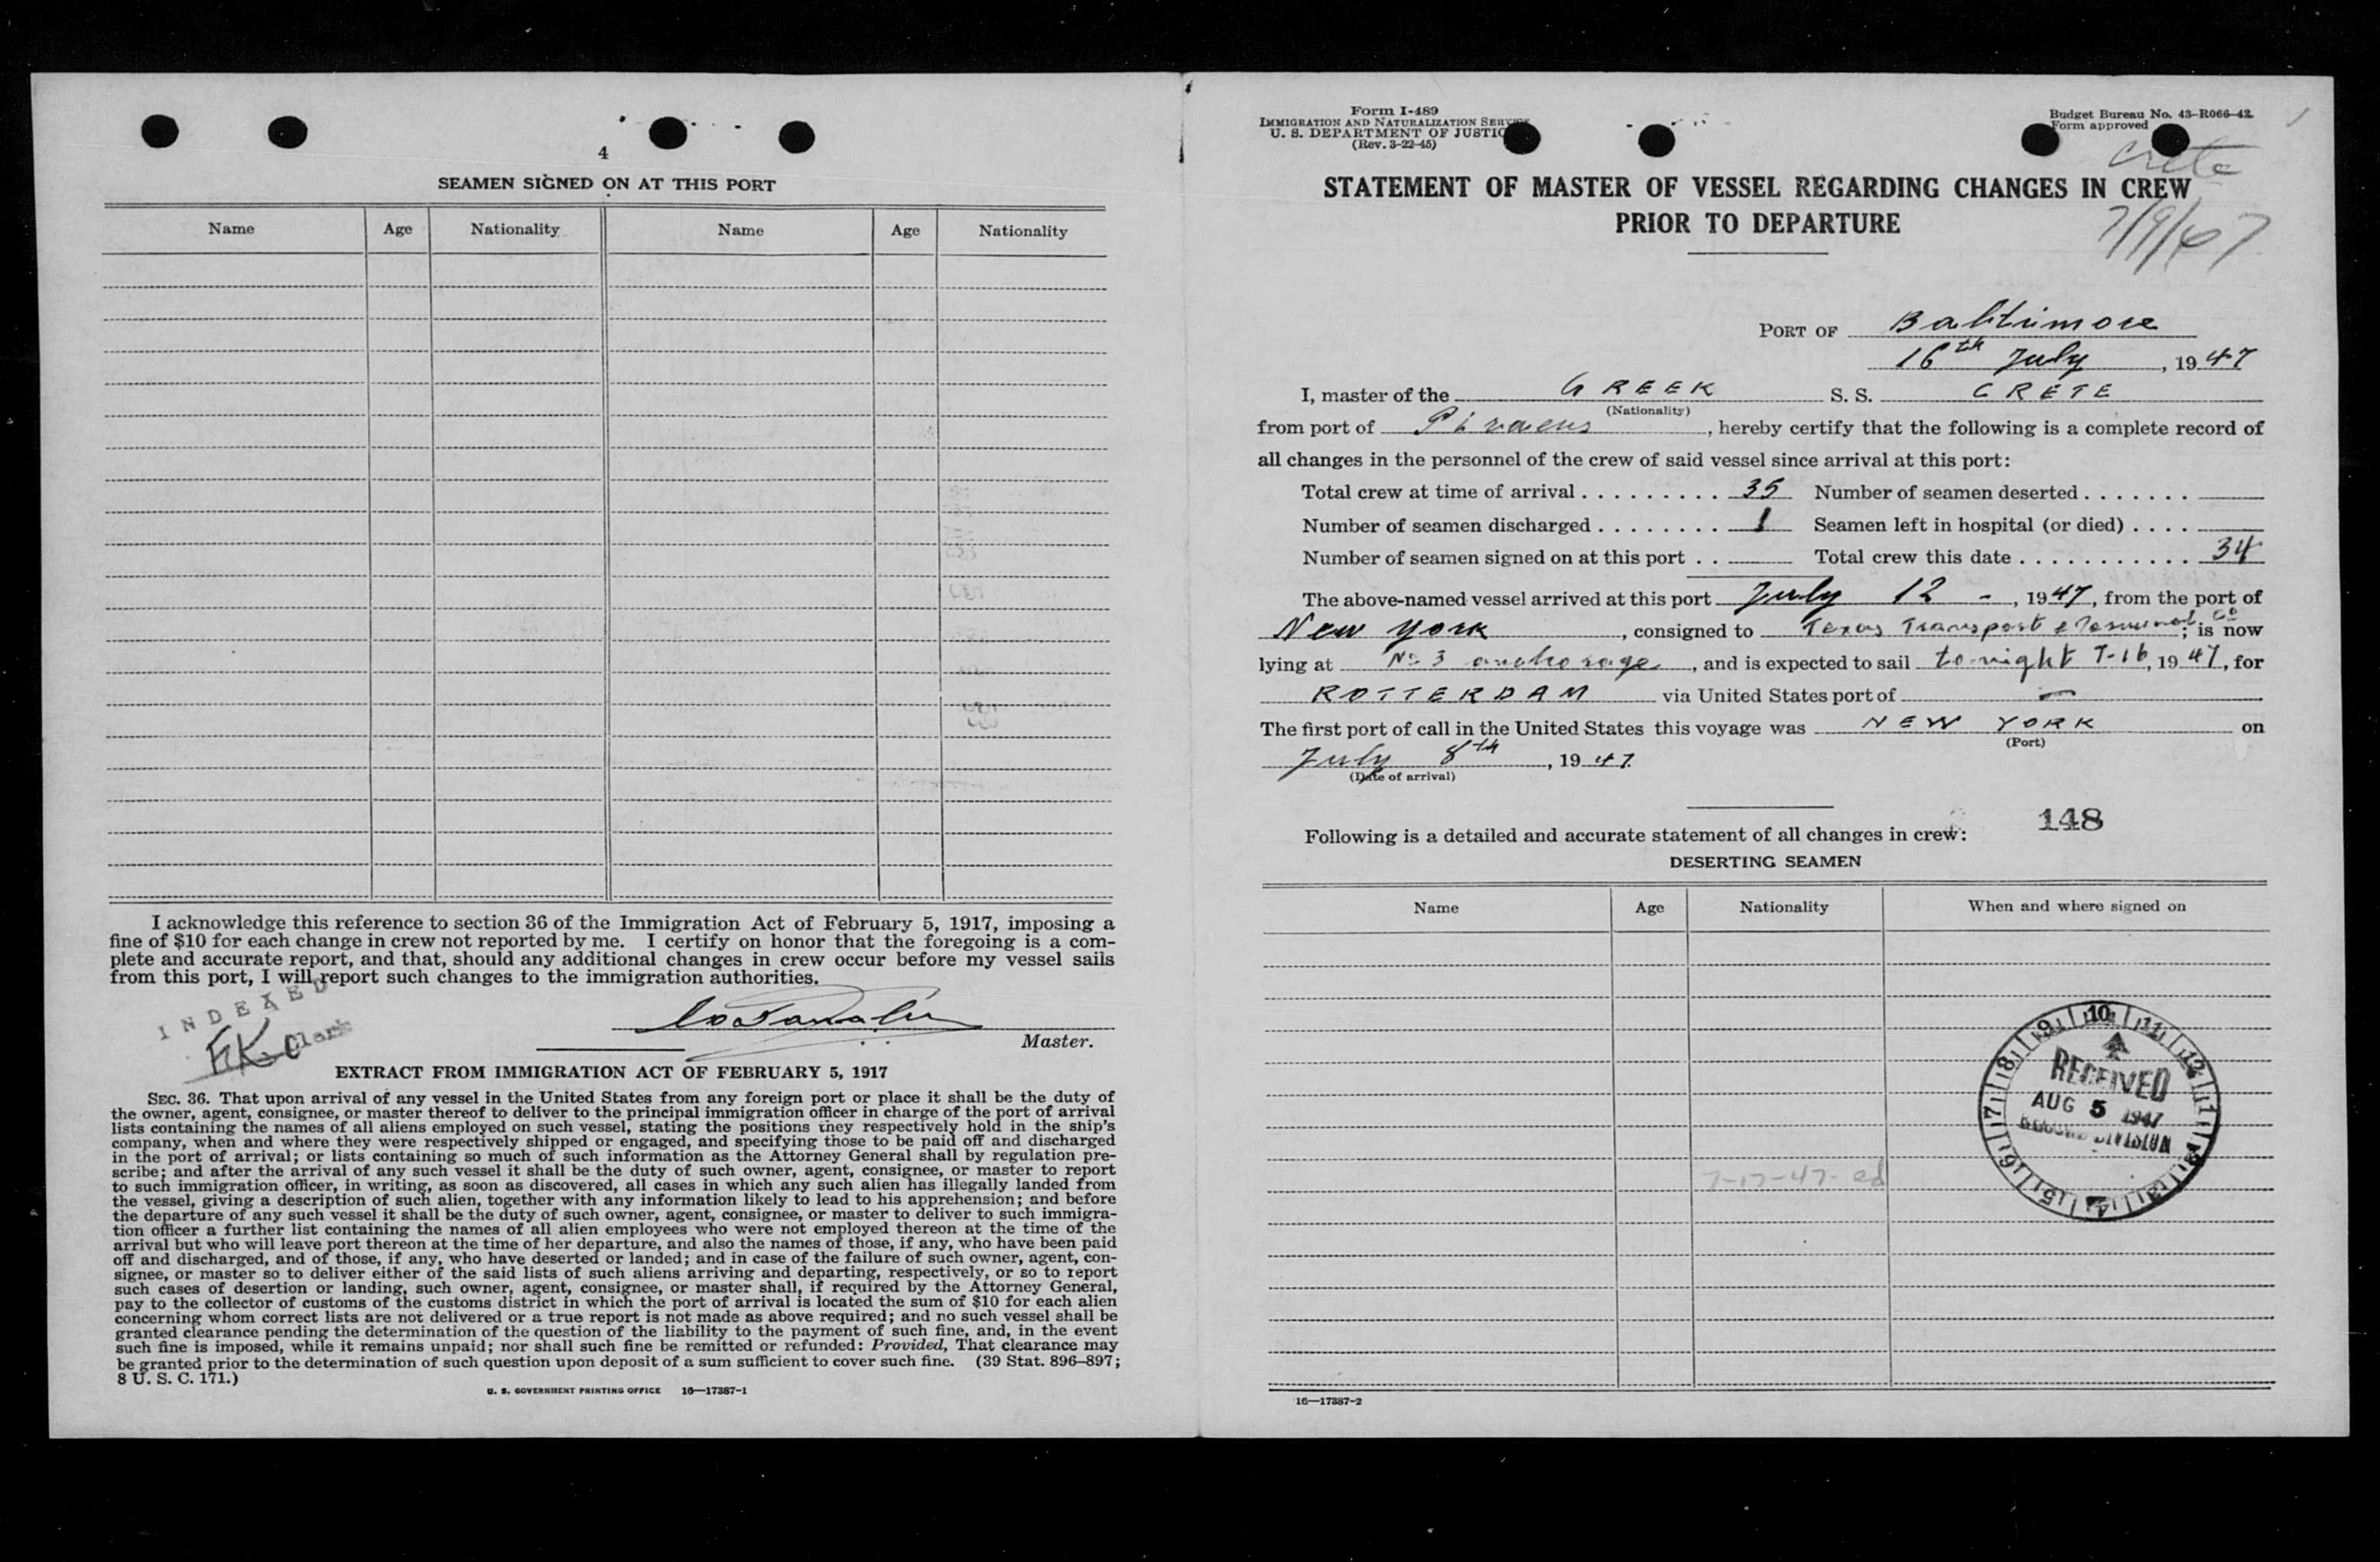 4
SEAMEN SIGNED ON AT THIS PORT
Name Age Nationality Name Age Nationality
I acknowledge this reference to section 36 of the Immigration Act of February 5, 1917, imposing a
fine of $10 for each change in crew not reported by me. I certify on honor that the foregoing is a com-
plete and accurate report, and that, should any additional changes in crew occur before my vessel sails
from this port, I will report such changes to the immigration authorities.
INDEXED
Clerk
Master.
EXTRACT FROM IMMIGRATION ACT OF FEBRUARY 5, 1917
SEC. 36. That upon arrival of any vessel in the United States from any foreign port or place it shall be the duty of
the owner, agent, consignee, or master thereof to deliver to the principal immigration officer in charge of the port of arrival
lists containing the names of all aliens employed on such vessel, stating the positions they respectively hold in the ship's
company, when and where they were respectively shipped or engaged, and specifying those to be paid off and discharged
in the port of arrival; or lists containing so much of such information as the Attorney General shall by regulation pre-
scribe; and after the arrival of any such vessel it shall be the duty of such owner, agent, consignee, or master to report
to such immigration officer, in writing, as soon as discovered, all cases in which any such alien has illegally landed from
the vessel, giving a description of such alien, together with any information likely to lead to his apprehension; and before
the departure of any such vessel it shall be the duty of such owner, agent, consignee, or master to deliver to such immigra-
tion officer a further list containing the names of all alien employees who were not employed thereon at the time of the
arrival but who will leave port thereon at the time of her departure, and also the names of those, if any, who have been paid
off and discharged, and of those, if any, who have deserted or landed; and in case of the failure of such owner, agent, con-
signee, or master so to deliver either of the said lists of such aliens arriving and departing, respectively, or so to report
such cases of desertion or landing, such owner, agent, consignee, or master shall, if required by the Attorney General,
pay to the collector of customs of the customs district in which the port of arrival is located the sum of $10 for each alien
concerning whom correct lists are not delivered or a true report is not made as above required; and no such vessel shall be
granted clearance pending the determination of the question of the liability to the payment of such fine, and, in the event
such fine is imposed, while it remains unpaid; nor shall such fine be remitted or refunded: Provided, That clearance may
be granted prior to the determination of such question upon deposit of a sum sufficient to cover such fine. (39 Stat. 896–897;
8 U. S. C. 171.)
U. S. GOVERNMENT PRINTING OFFICE 16—17387-1
Form I-489
IMMIGRATION AND NATURALIZATION SERVICE
U. S. DEPARTMENT OF JUSTIC
(Rev. 3-22-45)
Budget Bureau No. 43-R066-42.
Form approved
Crete
7/9/47
STATEMENT OF MASTER OF VESSEL REGARDING CHANGES IN CREW
PRIOR TO DEPARTURE
PORT OF Baltimore
16th July, 1947
I, master of the GREEK S. S. CRETE
(Nationality)
from port of Piraeus, hereby certify that the following is a complete record of
all changes in the personnel of the crew of said vessel since arrival at this port:
Total crew at time of arrival . . . . . . . . . 35 Number of seamen deserted . . . . . . .
Number of seamen discharged . . . . . . . . 1 Seamen left in hospital (or died) . . . .
Number of seamen signed on at this port . . Total crew this date . . . . . . . . . . . 34
The above-named vessel arrived at this port July 12 -, 1947, from the port of
New York, consigned to Texas Transport & Terminal Co; is now
lying at No 3 anchorage, and is expected to sail tonight 7-16, 1947, for
ROTTERDAM via United States port of —
The first port of call in the United States this voyage was NEW YORK on
(Port)
July 8th, 1947.
(Date of arrival)
148
Following is a detailed and accurate statement of all changes in crew:
DESERTING SEAMEN
Name Age Nationality When and where signed on
RECEIVED
AUG 5 1947
RECORD DIVISION
7-17-47- ed
16—17387-2